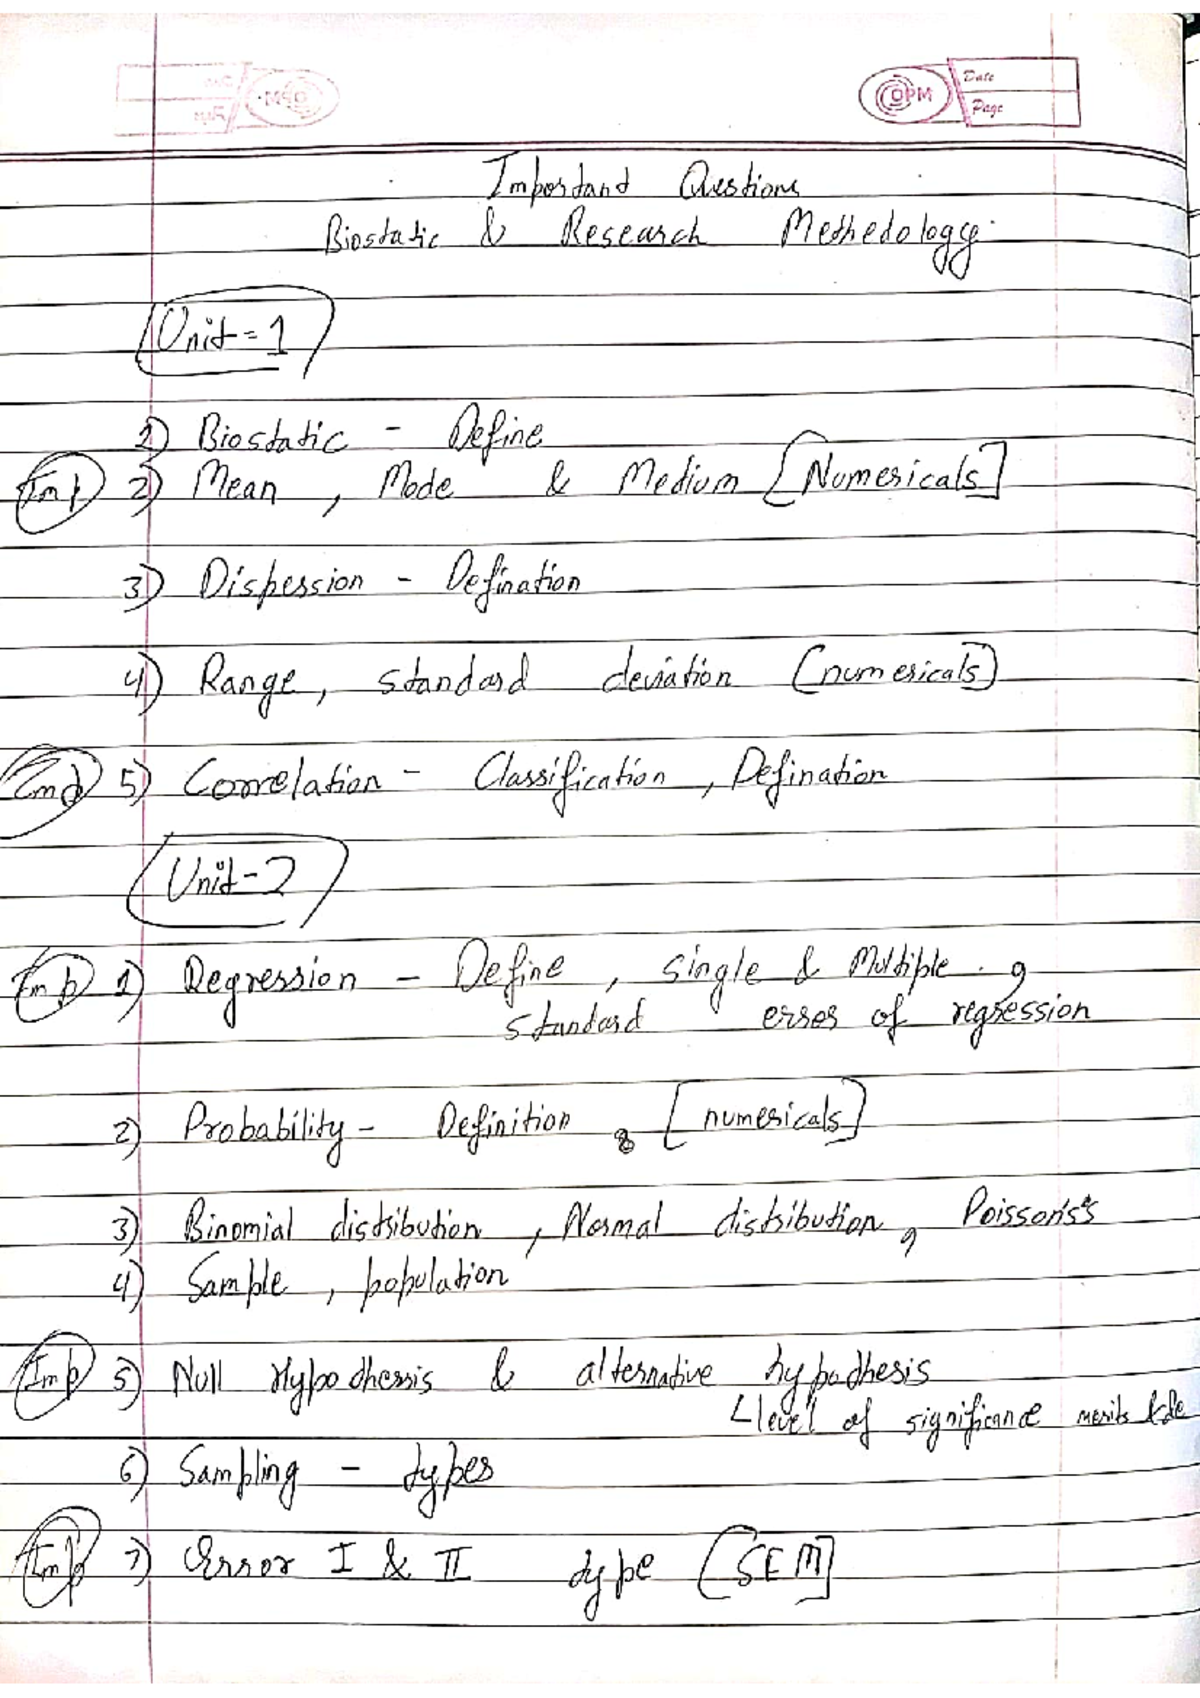 OPM Date
Page
Importand Questions
Biostatic & Research Methedology
Unit = 1
1) Biostatic - Define
Imp 2) Mean, Mode & Medium [Numericals]
3) Dispession - Defination
4) Range, standard deviation (numericals)
Imp 5) Correlation - Classification, Defination
Unit - 2
Imp 1) Regression - Define, single & Multiple,
standard errors of regression
2) Probability - Definition & [numericals]
3) Binomial distribution, Normal distribution, Poission's
4) Sample, population
Imp 5) Null Hypothesis & alternative hypothesis
level of significance merits & de
6) Sampling - types
Imp 7) Error I & II type [SEM]